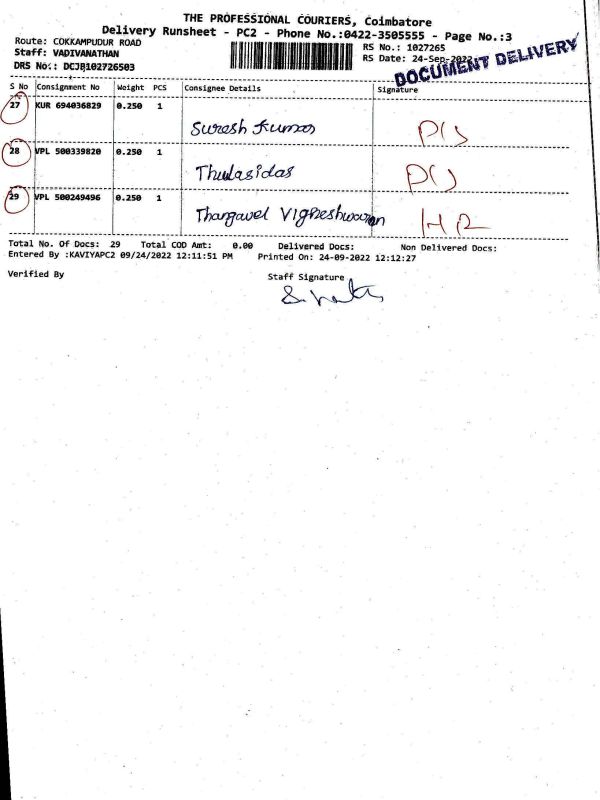 THE PROFESSIONAL COURIERS, Coimbatore
Delivery Runsheet - PC2 - Phone No.:0422-3505555 - Page No.:3
Route: COKKAMPUDUR ROAD
Staff: VADIVANATHAN
DRS No.: DCJB102726503
RS No.: 1027265
RS Date: 24-Sep-2022
DOCUMENT DELIVERY
S No Consignment No Weight PCS Consignee Details Signature
27 KUR 694036829 0.250 1
Suresh Kumar
28 VPL 500339820 0.250 1
Thulasidas
29 VPL 500249496 0.250 1
Thangavel Vigneshwaran
Total No. Of Docs: 29 Total COD Amt: 0.00 Delivered Docs: Non Delivered Docs:
Entered By :KAVIYAPC2 09/24/2022 12:11:51 PM Printed On: 24-09-2022 12:12:27
Verified By Staff Signature